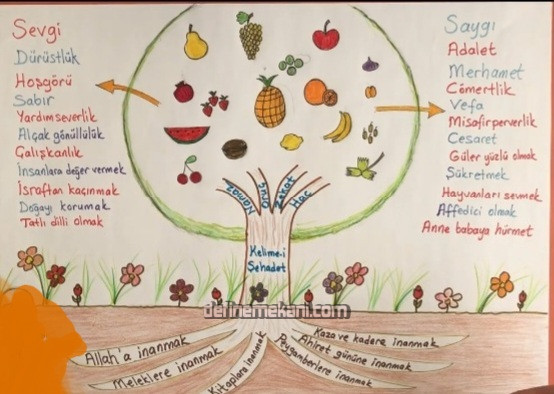 Sevgi
Dürüstlük
Hoşgörü
Sabır
Yardımseverlik
Alçak gönüllülük
Çalışkanlık
İnsanlara değer vermek
İsraftan kaçınmak
Doğayı korumak
Tatlı dilli olmak
Saygı
Adalet
Merhamet
Cömertlik
Vefa
Misafirperverlik
Cesaret
Güler yüzlü olmak
Şükretmek
Hayvanları sevmek
Affedici olmak
Anne babaya hürmet
Namaz
Oruç
Zekat
Hac
Kelime-i
Şehadet
definemekani.com
Allah'a inanmak
Meleklere inanmak
Kitaplara inanmak
Peygamberlere inanmak
Ahiret gününe inanmak
Kaza ve kadere inanmak